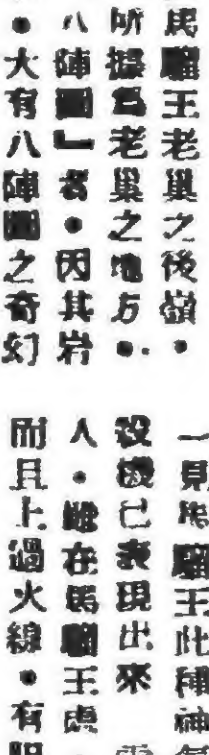 馬騮王老巢之後嶺●
所據爲老巢之地方●
八陣圖』者●因其岩
●大有八陣圖之奇幻
一見馬騮王此種神
殺機已表現出來
人●雖在馬騮王虎
而且上過火線●有